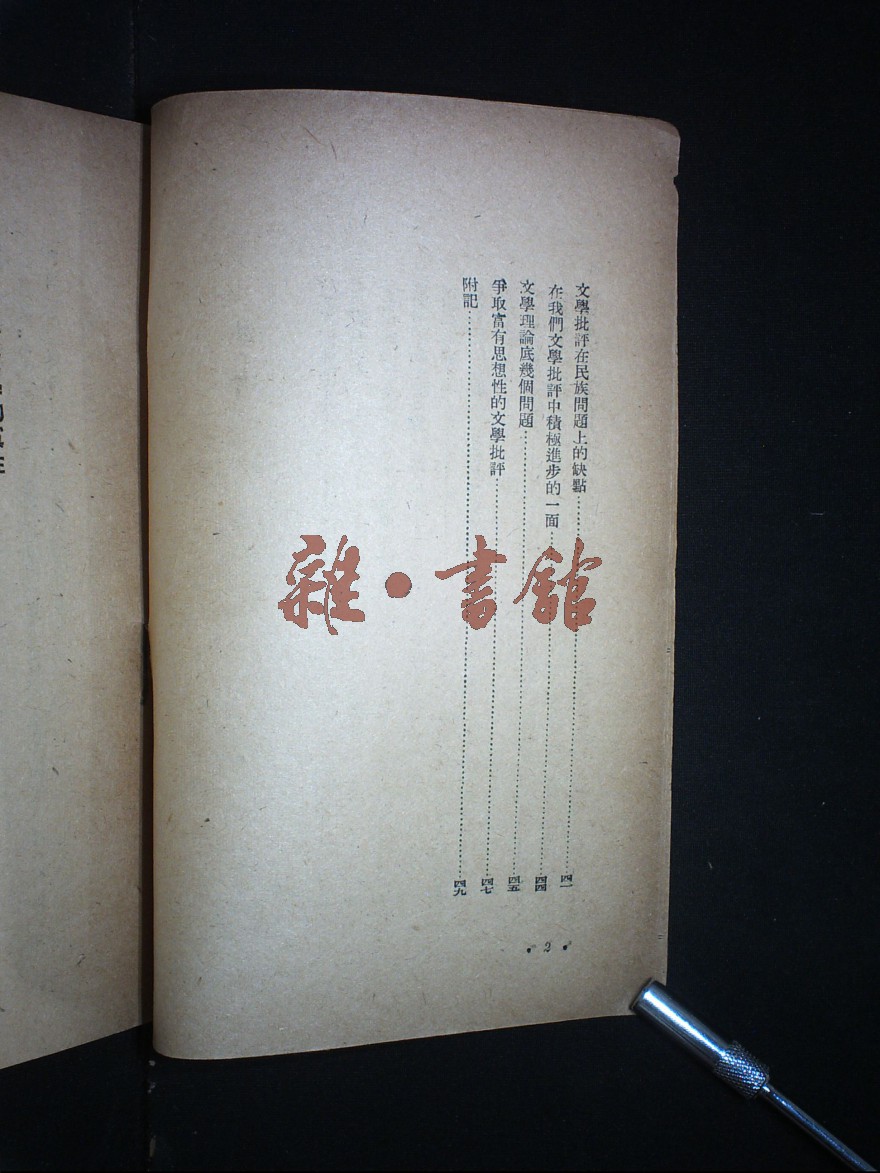 文學批評在民族問題上的缺點……四一
在我們文學批評中積極進步的一面……四四
文學理論底幾個問題……四五
爭取富有思想性的文學批評……四七
附記……四九
• 2 •
雜•書館